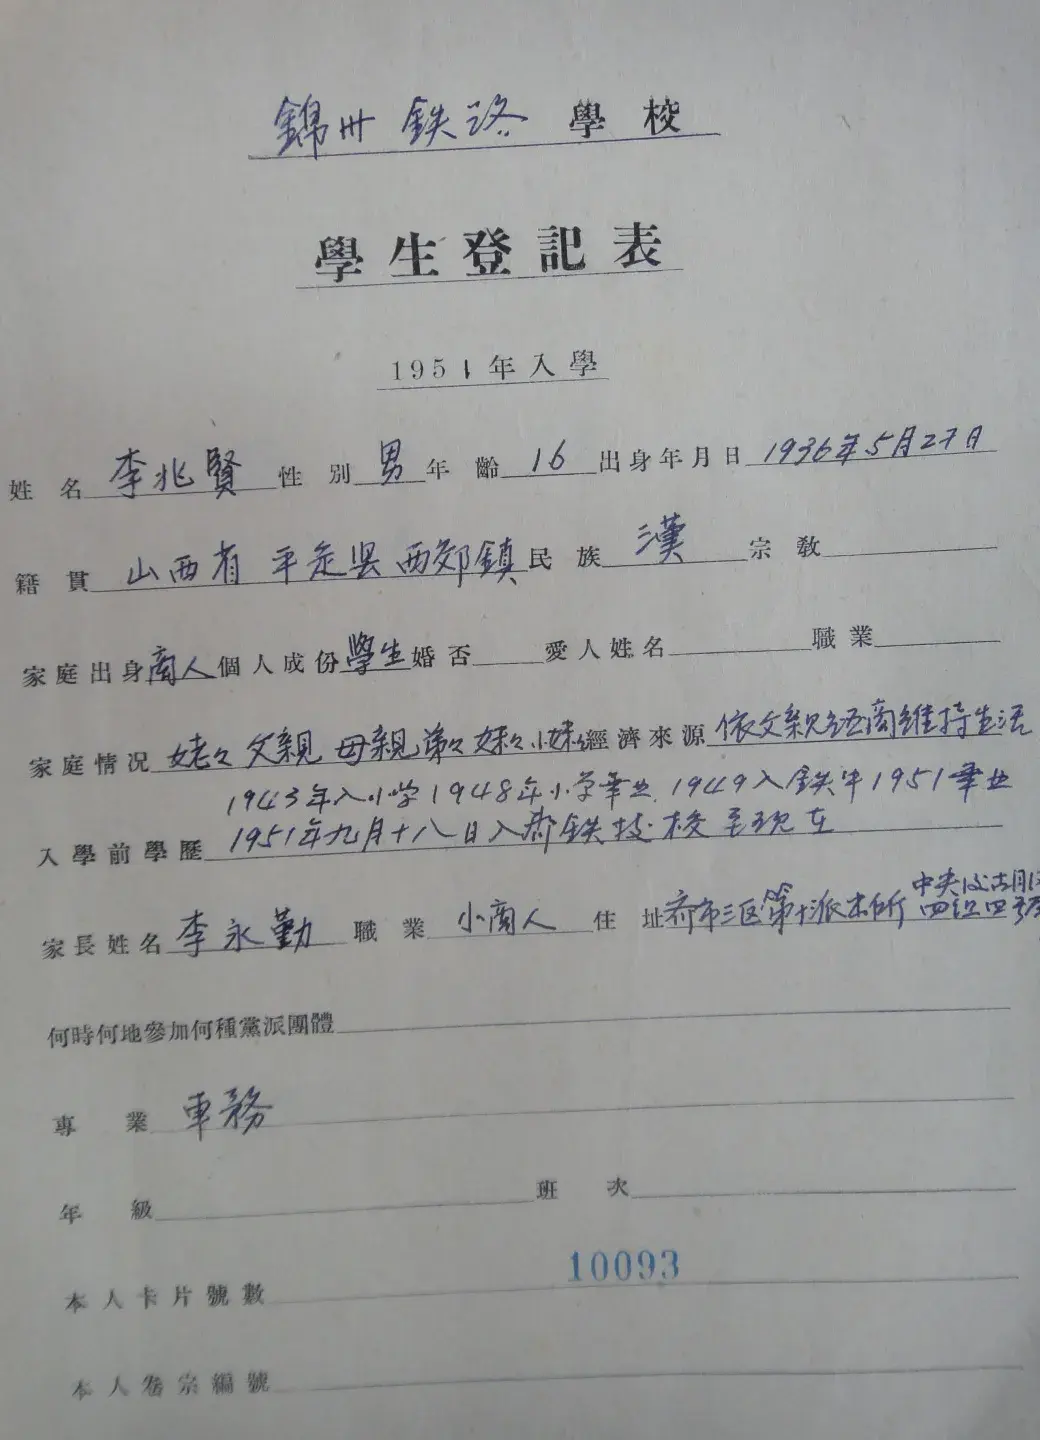 錦州 鉄路 學校
學生登記表
1951年入學
姓名 李兆賢 性別 男 年齡 16 出身年月日 1936年5月27日
籍貫 山西省 平定县 西郊鎮 民族 漢 宗教
家庭出身 商人 個人成份 學生 婚否 愛人姓名 職業
家庭情况 姥々 父親 母親 弟々 妹々 小妹 經濟來源 依父親經商維持生活
1943年入小学 1948年小学畢业 1949入鉄中 1951畢业
入學前學歷 1951年九月十八日入 鉄技校 至現在
家長姓名 李永勤 職業 小商人 住址 市三区第十派出所 中央
四組四号
何時何地參加何種黨派團體
專業 車務
年級 班次
本人卡片號數 10093
本人卷宗編號